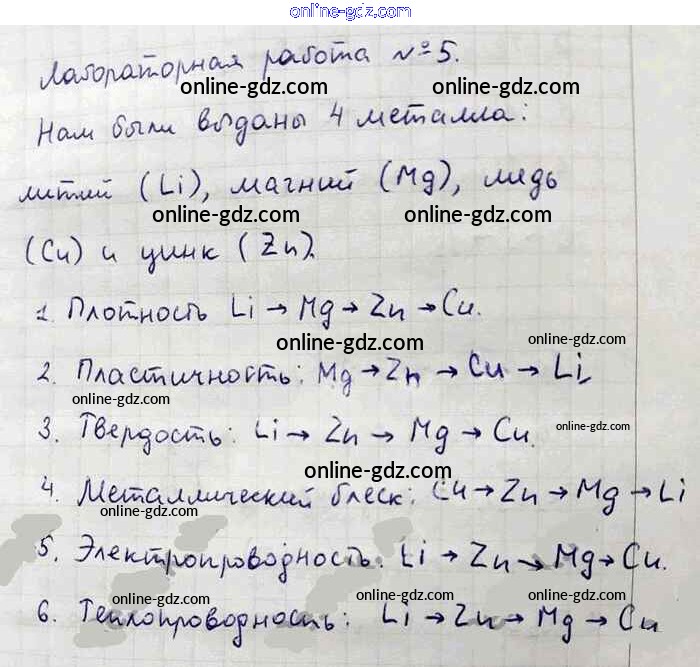 online-gdz.com
Лабораторная работа №5.
online-gdz.com online-gdz.com
Нам были выданы 4 металла:
литий (Li), магний (Mg), медь
online-gdz.com online-gdz.com
(Cu) и цинк (Zn).
1. Плотность Li → Mg → Zn → Cu.
online-gdz.com online-gdz.com
2. Пластичность: Mg → Zn → Cu → Li
online-gdz.com
3. Твердость: Li → Zn → Mg → Cu.
online-gdz.com
online-gdz.com
4. Металлический блеск: Cu → Zn → Mg → Li
online-gdz.com
5. Электропроводность: Li → Zn → Mg → Cu.
online-gdz.com online-gdz.com online-gdz.com
6. Теплопроводность: Li → Zn → Mg → Cu
online-gdz.com